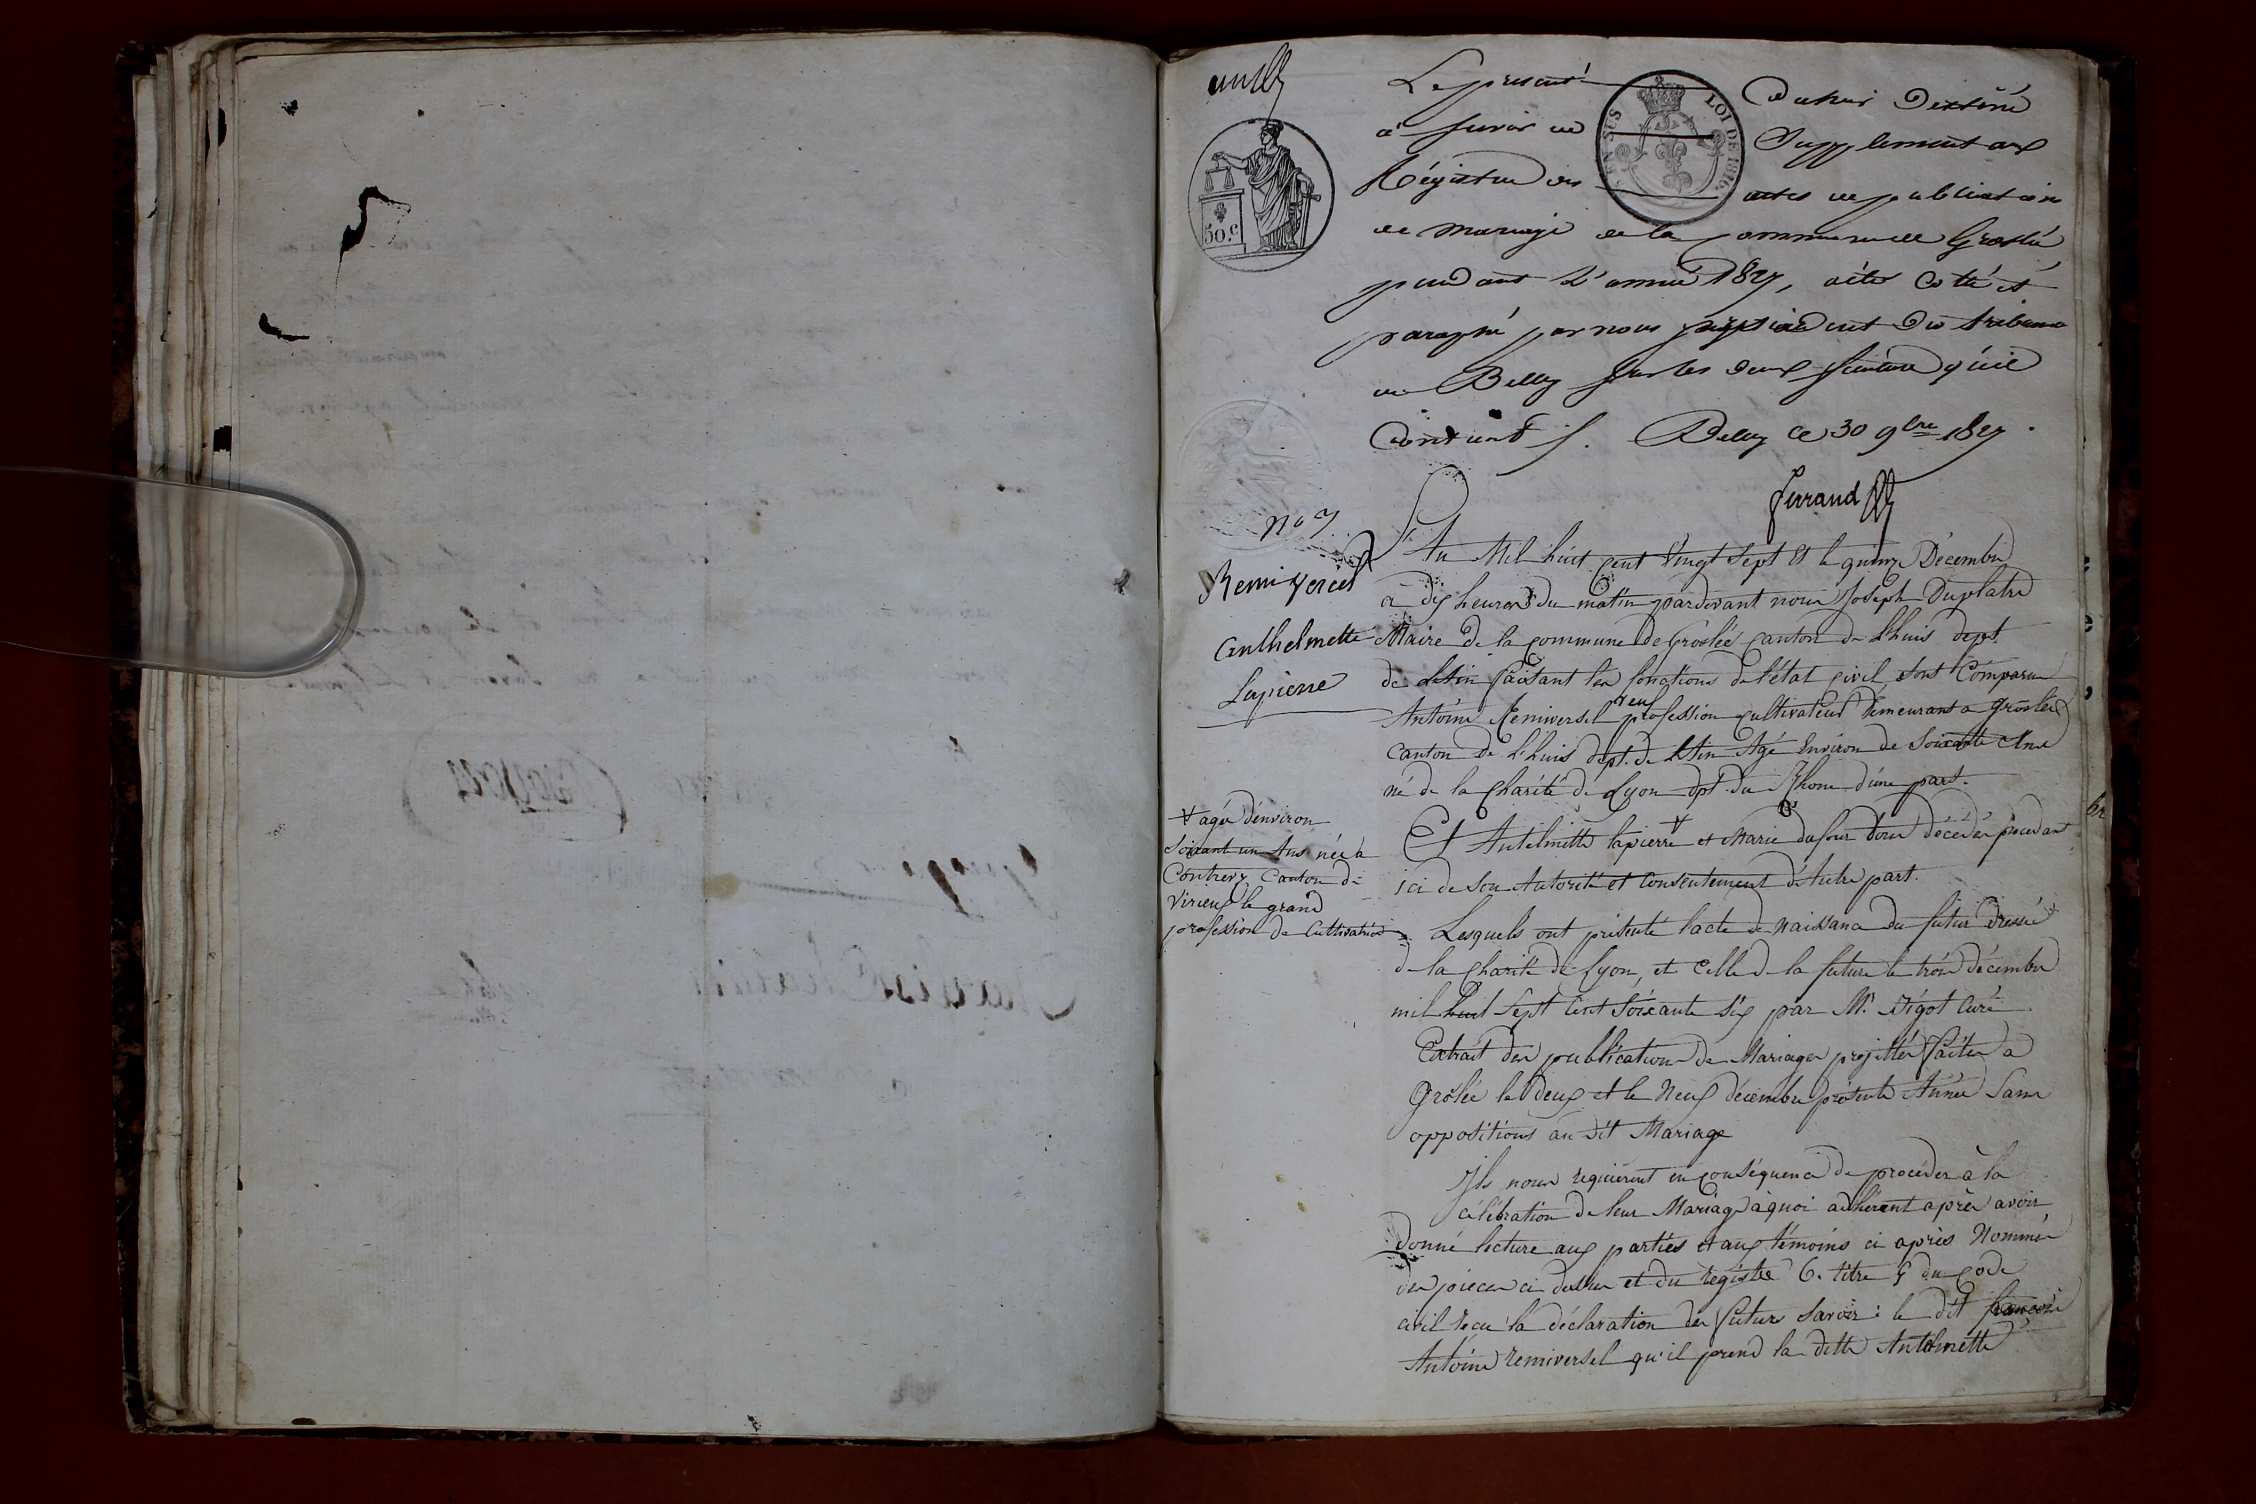 Le présent Cahier Destiné
à servir de Supplement aux
Régistre des actes de publication
de mariage de la commune de Groslée
pendant L'année 1827, a été Cotté et
paraphé par nous président Du tribunal
de Belley sur les deux feuillets qu'il
Contient. Belley Ce 30 9bre 1827.
Ferrand
EN SUS LOI DE 1816
50 c
no 7
Remi Vercel
Anthelmette
Lapierre
L'An Mil huit cent Vingt Sept et le quinze Décembre
à dix heures du matin pardevant nous Joseph Duplatre
Maire de la commune de Groslée canton de Lhuis dept.
de L'Ain faisant les fonctions de l'état civil sont Comparu
Antoine Remiversel veuf profession cultivateur Demeurant a Groslée
canton de Lhuis dept. de L'Ain Agé Environ de Soixante Ans
né de la Charité de Lyon dpt. du Rhone d'une part.
Et Antelmette lapierre + et Marie dufour tous décédés procedant
ici de Son Autorité et Consentement d'Autre part.
+ agée d'environ
Soixant un Ans née à
Contrevz Canton de
Virieux le grand
profession de Cultivatrice
Lesquels ont présenté l'acte de Naissance du futur Dressé
de la Charité de Lyon, et Celle de la future le trois décembre
mil huit Sept Cent Soixante Six par Mr. Digot Curé
Extrait des publications de Mariages projettés faites a
Grôlée le deux et le Neuf décembre présente Année Sans
oppositions au dit Mariage
Ils nous requierent en conséquence de procéder à la
célébration de leur Mariage à quoi adhérent après avoir
donné lecture aux parties et aux témoins ci après Nommés
des pieces ci dessus et du registre 6. titre 5 du Code
civil recu la déclaration des futurs Savoir: le dit francois
Antoine Remiversel qu'il prend la ditte Antelmette